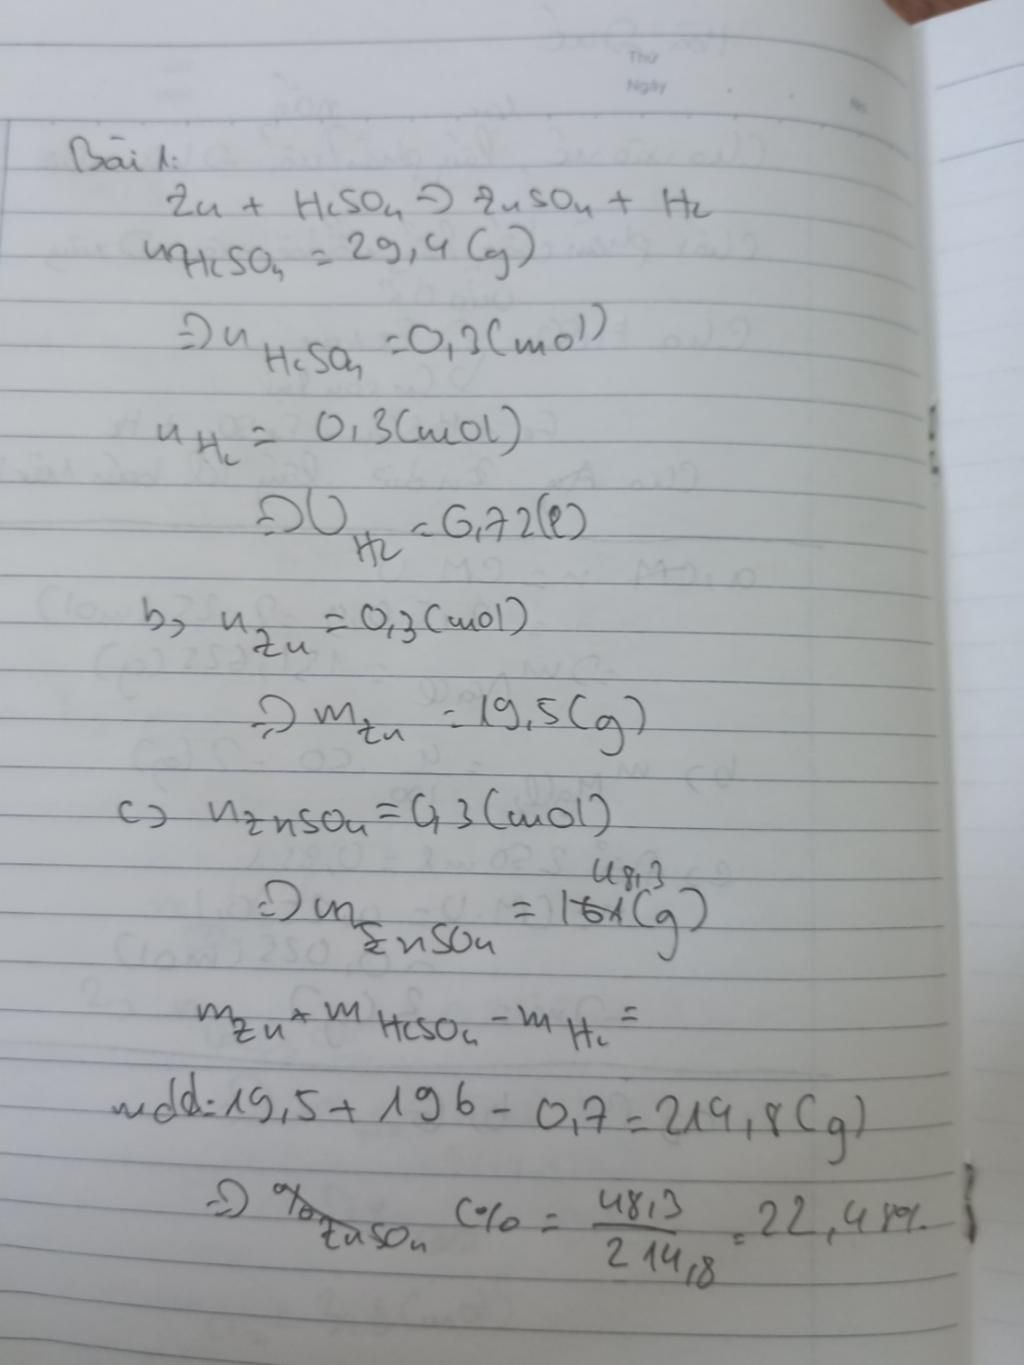 Thứ
Ngày
No.
Bài 1:
Zn + H2SO4 => ZnSO4 + H2
mH2SO4 = 29,4 (g)
=> nH2SO4 = 0,3 (mol)
nH2 = 0,3 (mol)
=> VH2 = 6,72 (l)
b, nZn = 0,3 (mol)
=> mZn = 19,5 (g)
c, nZnSO4 = 0,3 (mol)
48,3
=> mZnSO4 = 161 (g)
mZn + mH2SO4 - mH2 =
mdd = 19,5 + 196 - 0,7 = 214,8 (g)
=> %ZnSO4 C% = 48,3 / 214,8 = 22,48%